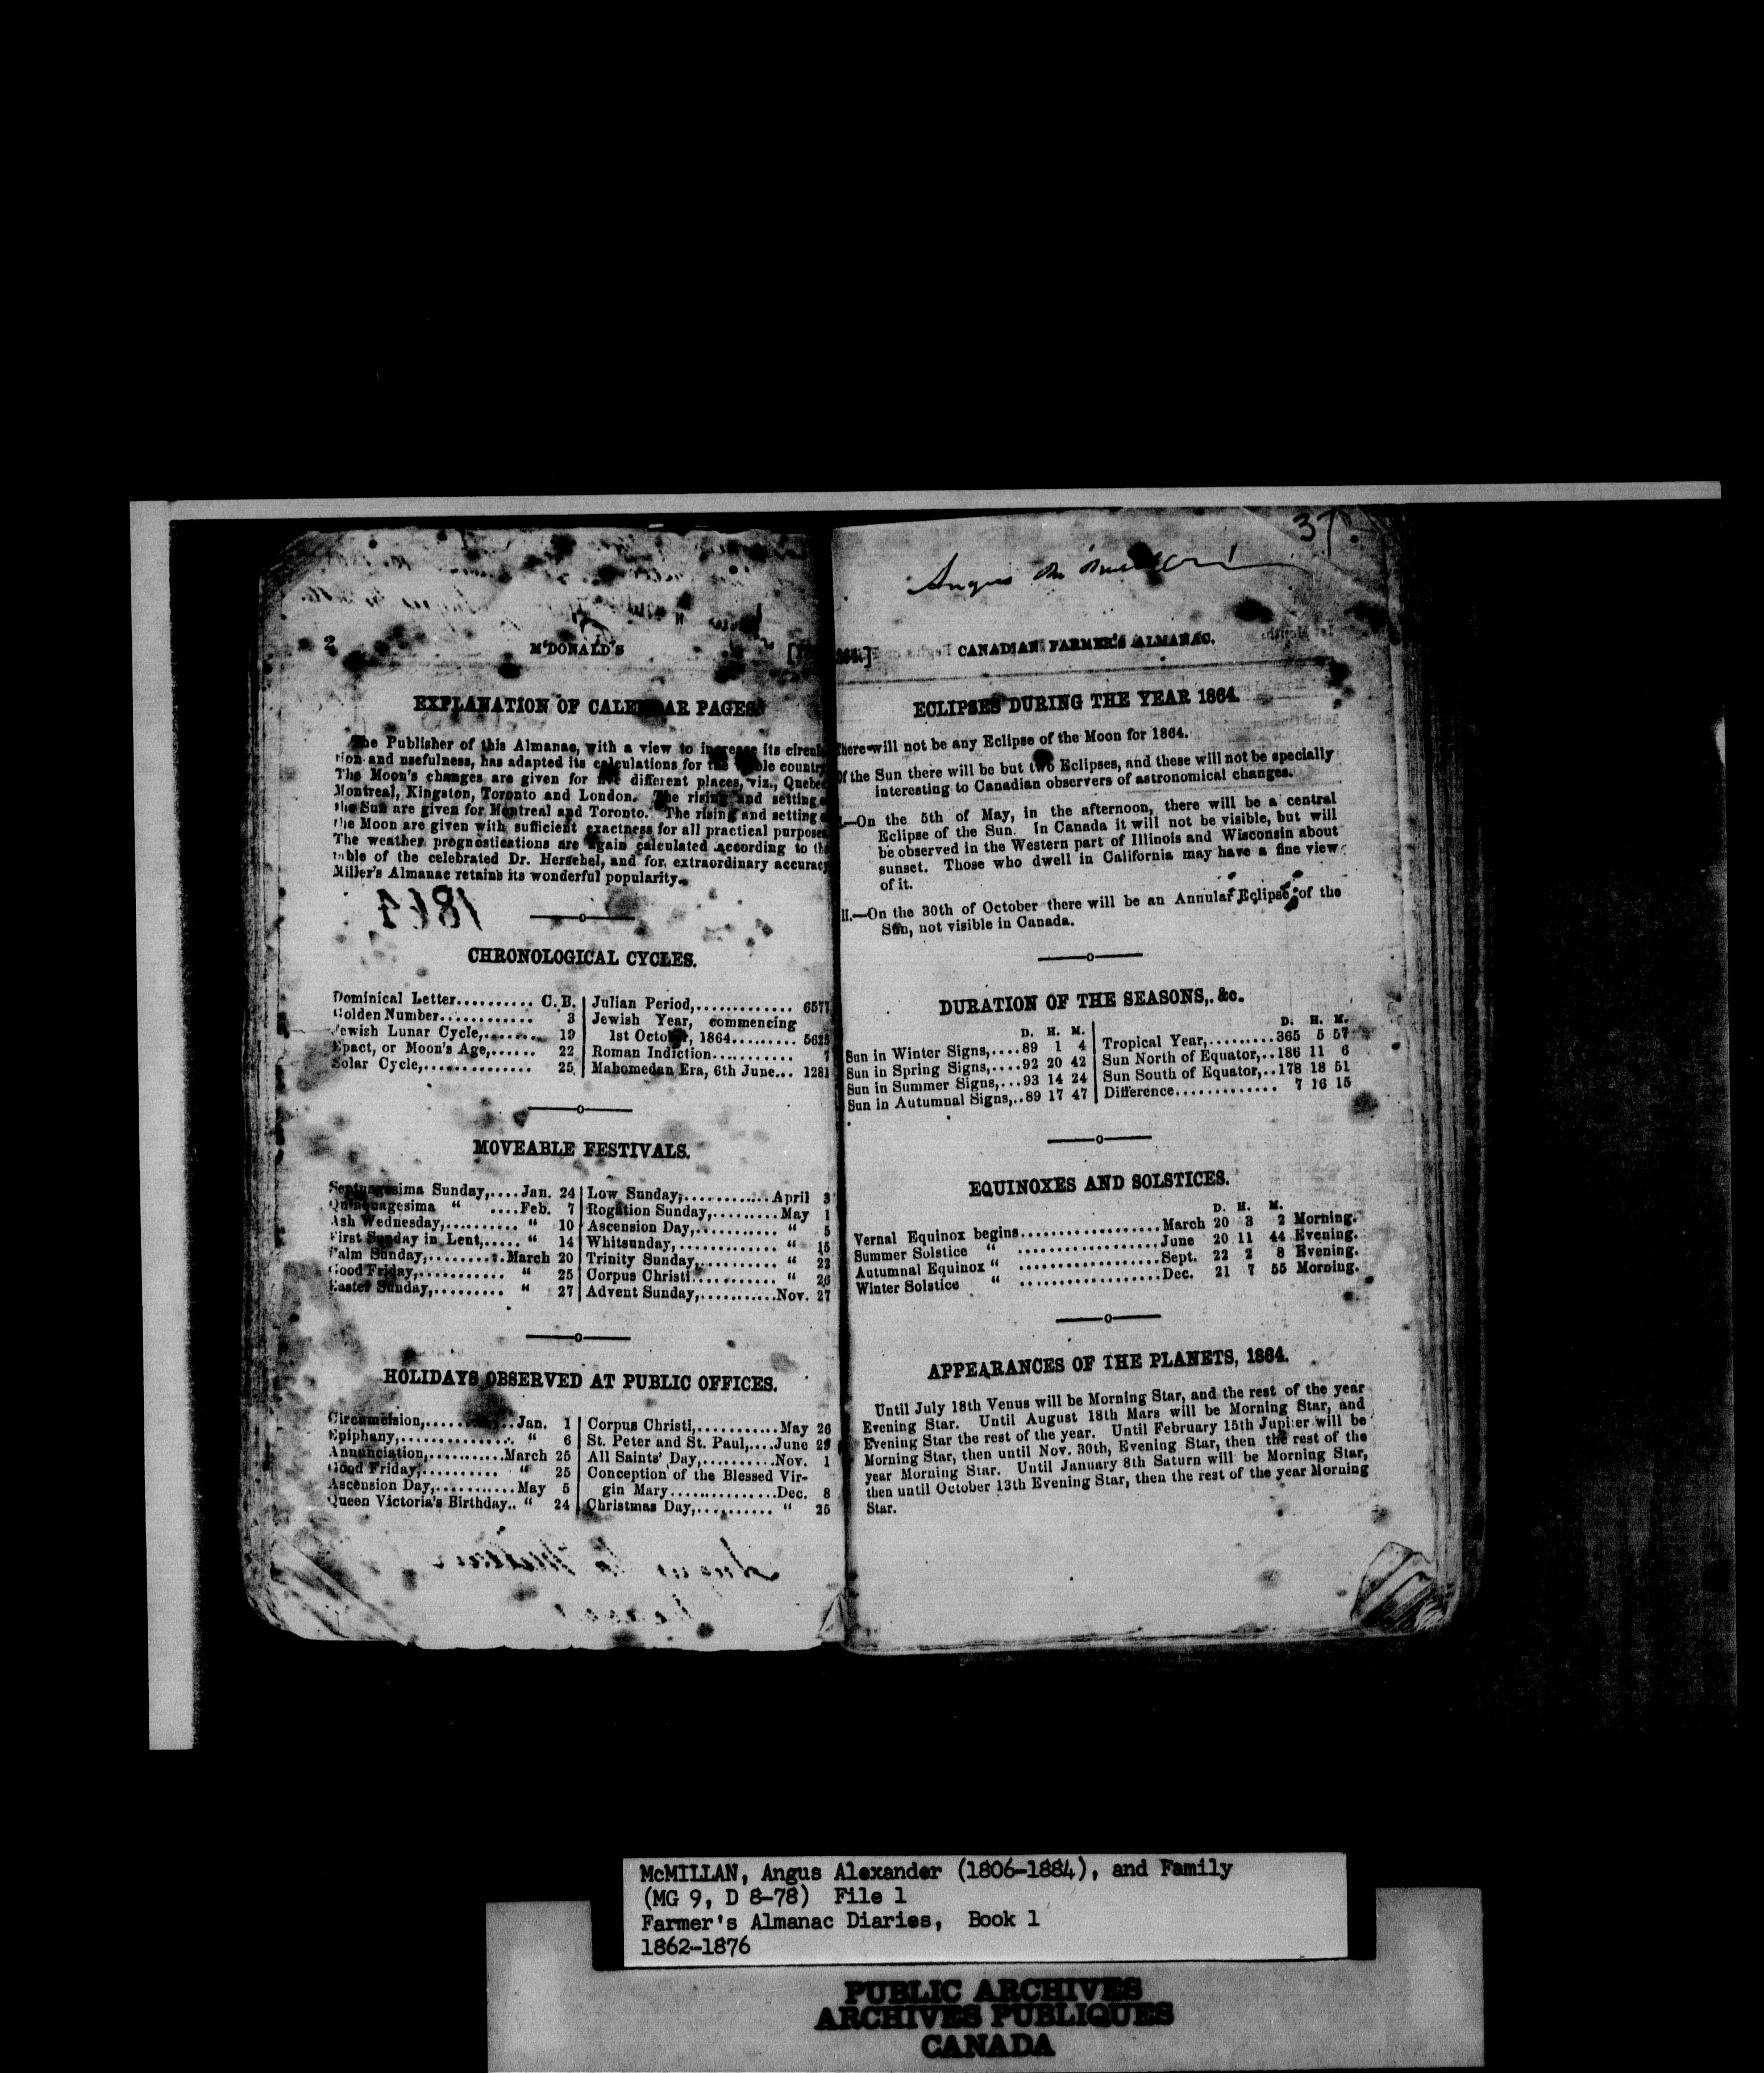 37.
Angus
2 McDONALD'S
EXPLANATION OF CALENDAR PAGES.
The Publisher of this Almanac, with a view to increase its circula
tion and usefulness, has adapted its calculations for the whole country
The Moon's changes are given for five different places, viz., Quebec
Montreal, Kingston, Toronto and London. The rising and setting
the Sun are given for Montreal and Toronto. The rising and setting
the Moon are given with sufficient exactness for all practical purposes
The weather prognostications are again calculated according to the
table of the celebrated Dr. Herschel, and for extraordinary accuracy
Miller's Almanac retains its wonderful popularity.
1864
CHRONOLOGICAL CYCLES.
Dominical Letter.......... C.B.
Golden Number............ 3
Jewish Lunar Cycle,........ 19
Epact, or Moon's Age,...... 22
Solar Cycle,.............. 25
Julian Period,............. 6577
Jewish Year, commencing
1st October, 1864......... 5625
Roman Indiction........... 7
Mahomedan Era, 6th June... 1281
MOVEABLE FESTIVALS.
Septuagesima Sunday,....Jan. 24
Quinquagesima " ....Feb. 7
Ash Wednesday,.......... " 10
First Sunday in Lent,..... " 14
Palm Sunday,.........March 20
Good Friday,........... " 25
Easter Sunday,......... " 27
Low Sunday,............April 3
Rogation Sunday,.........May 1
Ascension Day,........... " 5
Whitsunday,............. " 15
Trinity Sunday,.......... " 22
Corpus Christi........... " 26
Advent Sunday,...........Nov. 27
HOLIDAYS OBSERVED AT PUBLIC OFFICES.
Circumcision,............Jan. 1
Epiphany,............... " 6
Annunciation,...........March 25
Good Friday,.......... " 25
Ascension Day,...........May 5
Queen Victoria's Birthday.. " 24
Corpus Christi,...........May 26
St. Peter and St. Paul,....June 29
All Saints' Day,..........Nov. 1
Conception of the Blessed Vir-
gin Mary...............Dec. 8
Christmas Day,.......... " 25
CANADIAN FARMER'S ALMANAC.
ECLIPSES DURING THE YEAR 1864.
There will not be any Eclipse of the Moon for 1864.
Of the Sun there will be but two Eclipses, and these will not be specially
interesting to Canadian observers of astronomical changes.
I.—On the 5th of May, in the afternoon, there will be a central
Eclipse of the Sun. In Canada it will not be visible, but will
be observed in the Western part of Illinois and Wisconsin about
sunset. Those who dwell in California may have a fine view
of it.
II.—On the 30th of October there will be an Annular Eclipse of the
Sun, not visible in Canada.
DURATION OF THE SEASONS, &c.
D. H. M.
Sun in Winter Signs,....89 1 4
Sun in Spring Signs,....92 20 42
Sun in Summer Signs,...93 14 24
Sun in Autumnal Signs,..89 17 47
D. H. M.
Tropical Year,.........365 5 57
Sun North of Equator,..186 11 6
Sun South of Equator,..178 18 51
Difference............. 7 16 15
EQUINOXES AND SOLSTICES.
D. H. M.
Vernal Equinox begins.................March 20 3 2 Morning.
Summer Solstice " .................June 20 11 44 Evening.
Autumnal Equinox " .................Sept. 22 2 8 Evening.
Winter Solstice " .................Dec. 21 7 55 Morning.
APPEARANCES OF THE PLANETS, 1864.
Until July 18th Venus will be Morning Star, and the rest of the year
Evening Star. Until August 18th Mars will be Morning Star, and
Evening Star the rest of the year. Until February 15th Jupiter will be
Morning Star, then until Nov. 30th, Evening Star, then the rest of the
year Morning Star. Until January 8th Saturn will be Morning Star,
then until October 13th Evening Star, then the rest of the year Morning
Star.
McMILLAN, Angus Alexander (1806-1884), and Family
(MG 9, D 8-78) File 1
Farmer's Almanac Diaries, Book 1
1862-1876
PUBLIC ARCHIVES
ARCHIVES PUBLIQUES
CANADA